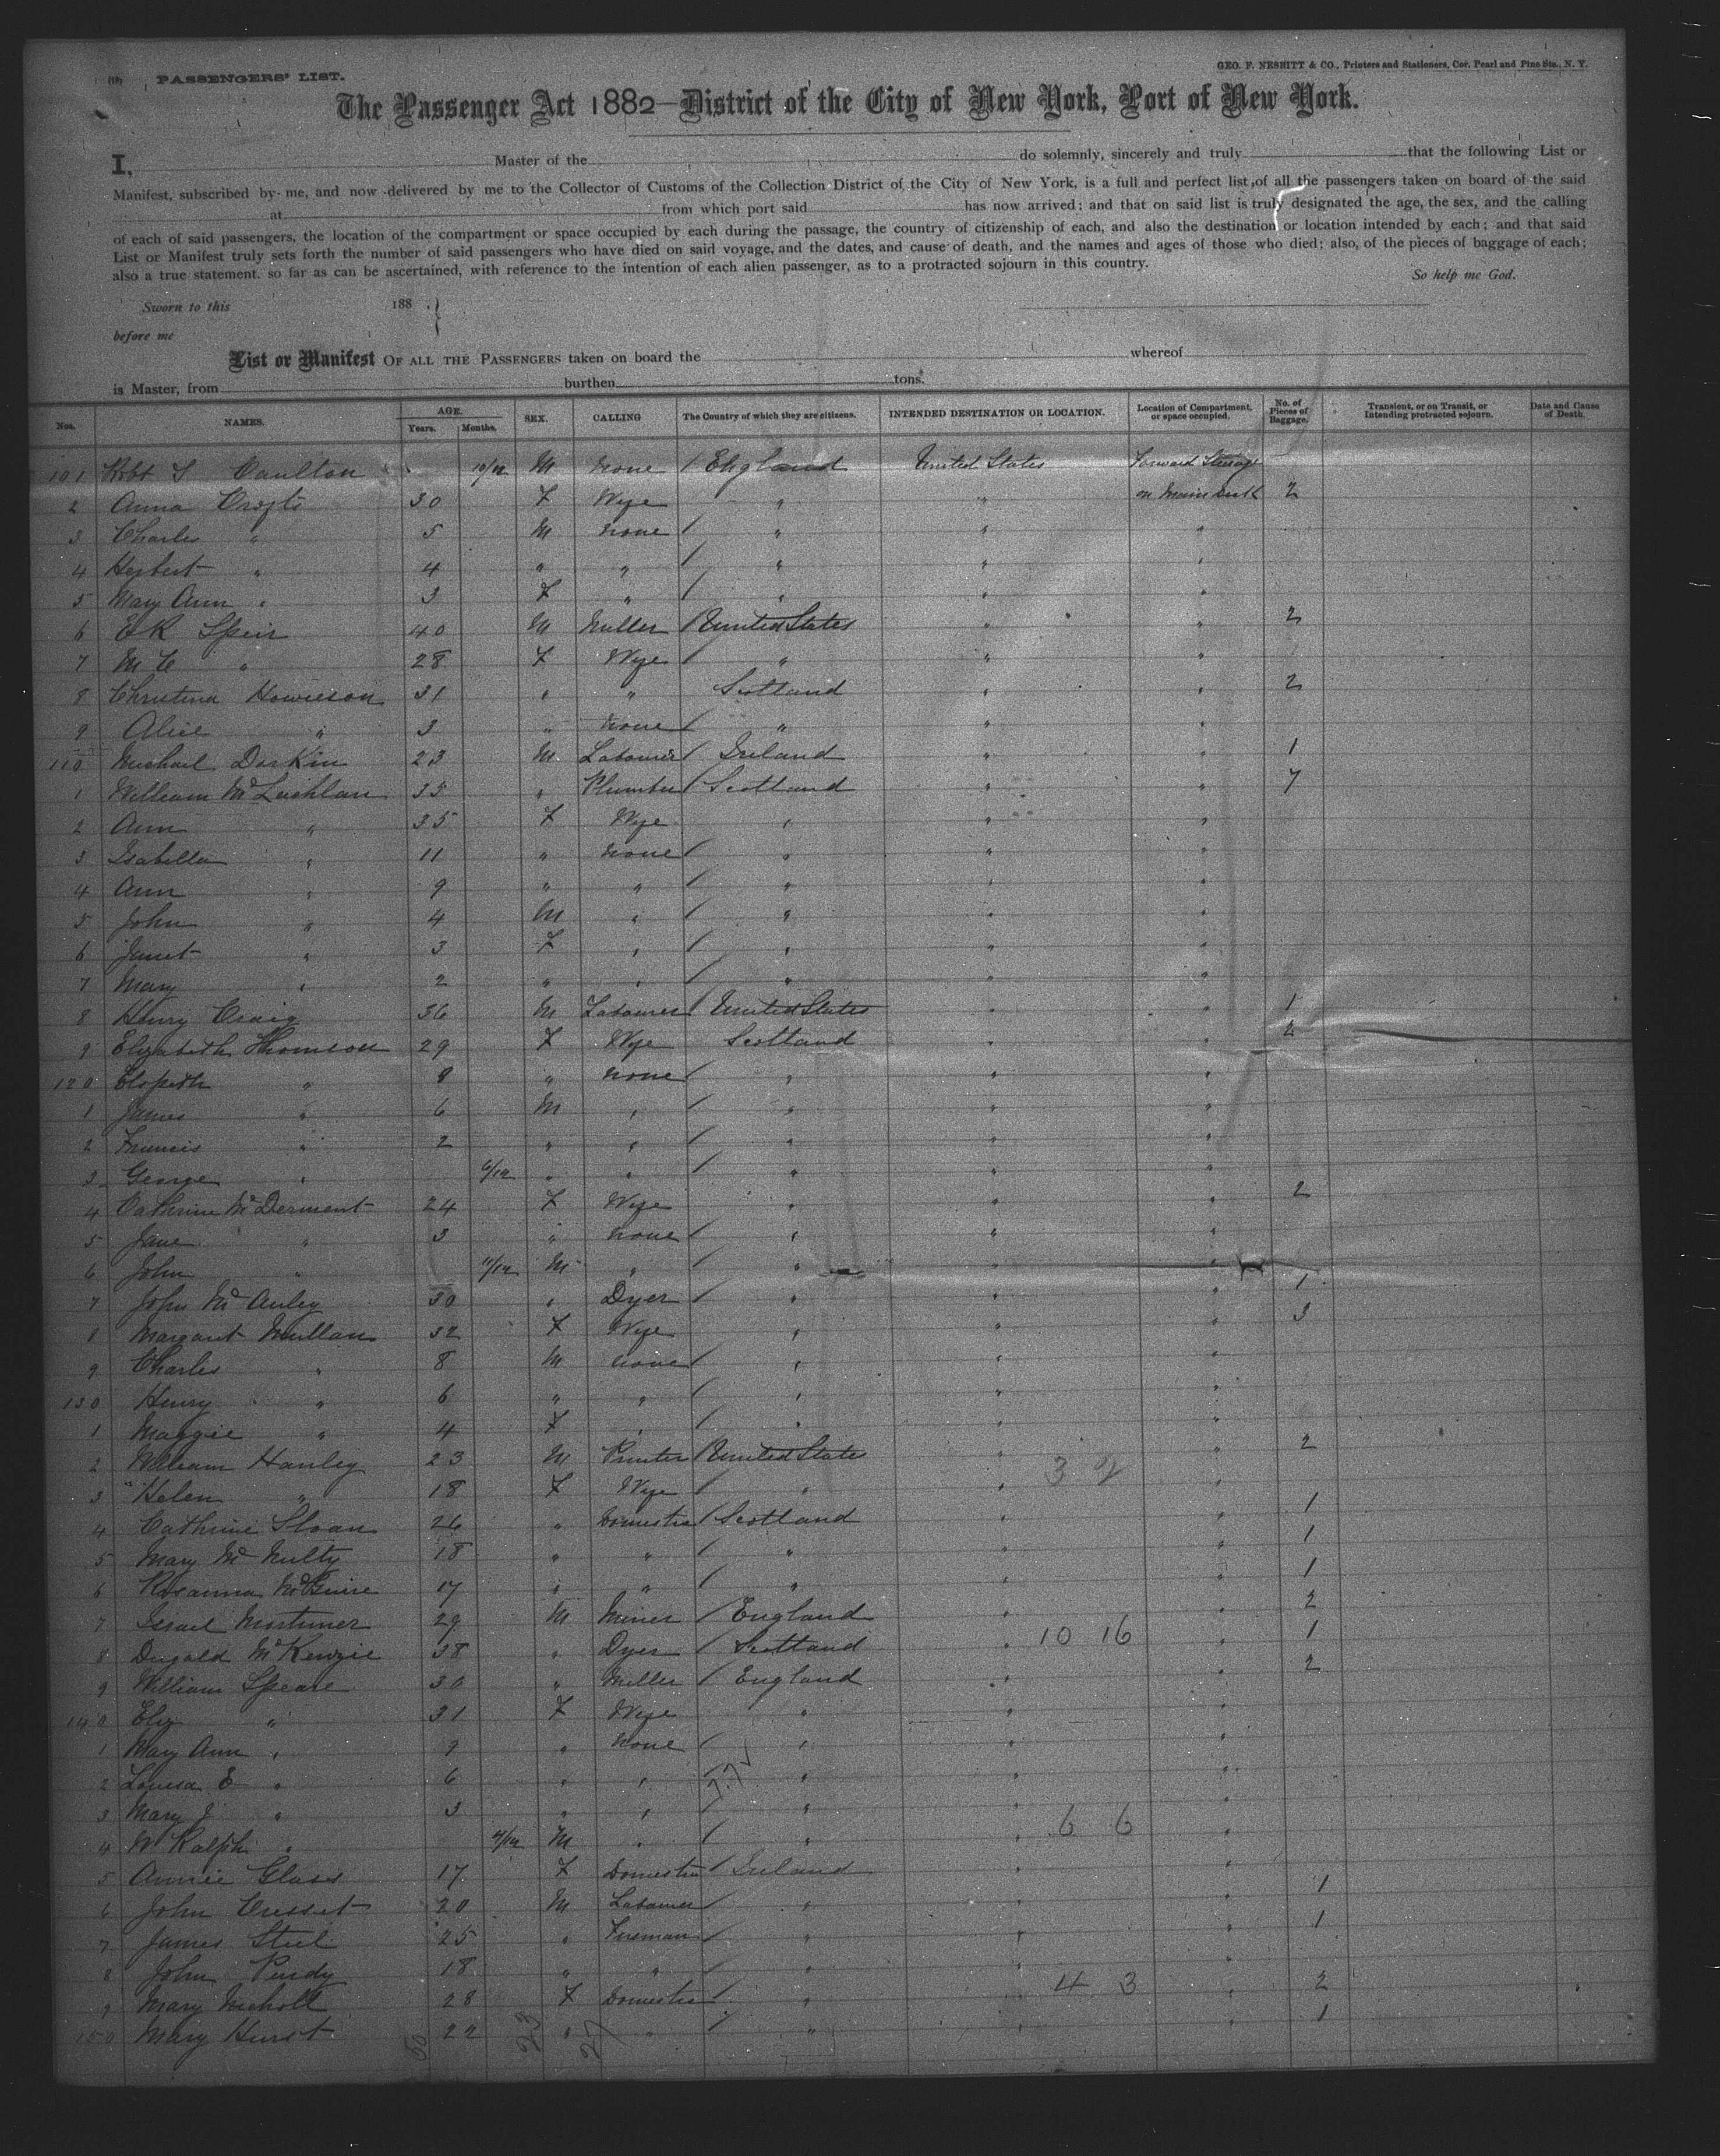 PASSENGERS' LIST.
GEO. F. NESBITT & CO., Printers and Stationers, Cor. Pearl and Pine Sts., N. Y.
The Passenger Act 1882—District of the City of New York, Port of New York.
I, Master of the do solemnly, sincerely and truly that the following List or
Manifest, subscribed by me, and now delivered by me to the Collector of Customs of the Collection District of the City of New York, is a full and perfect list of all the passengers taken on board of the said
at from which port said has now arrived; and that on said list is truly designated the age, the sex, and the calling
of each of said passengers, the location of the compartment or space occupied by each during the passage, the country of citizenship of each, and also the destination or location intended by each; and that said
List or Manifest truly sets forth the number of said passengers who have died on said voyage, and the dates, and cause of death, and the names and ages of those who died; also, of the pieces of baggage of each;
also a true statement, so far as can be ascertained, with reference to the intention of each alien passenger, as to a protracted sojourn in this country.
So help me God.
Sworn to this 188
before me
List or Manifest OF ALL THE PASSENGERS taken on board the whereof
is Master, from burthen tons.
Nos. NAMES. AGE. Years. Months. SEX. CALLING The Country of which they are citizens. INTENDED DESTINATION OR LOCATION. Location of Compartment, or space occupied. No. of Pieces of Baggage. Transient, or on Transit, or Intending protracted sojourn. Date and Cause of Death.
101 Robt S Caulton 10/12 M None / England United States Forward Steerage
2 Anna Crofts 30 F Wife " " on Main Deck 2
3 Charles " 5 M None / " " "
4 Herbert " 4 " " / " " "
5 Mary Ann " 3 F " / " " "
6 E R Speir 40 M Miller / United States " " 2
7 M C " 28 F Wife / " " "
8 Christina Howieson 31 " " Scotland " " 2
9 Alice " 3 " None / " " "
110 Michael Dorkin 23 M Labourer / Ireland " " 1
1 William McLachlan 35 " Plumber / Scotland " " 7
2 Ann " 35 F Wife " " "
3 Isabella " 11 " None / " " "
4 Ann " 9 " " / " " "
5 John " 4 M " / " " "
6 Janet " 3 F " / " " "
7 Mary " 2 " " / " " "
8 Henry Craig 36 M Labourer / United States " " 1
9 Elizabeth Thomson 29 F Wife Scotland " " 2
120 Elspeth " 8 " None / " " "
1 James " 6 M " / " " "
2 Francis " 2 " " / " " "
3 George " 6/12 " " / " " "
4 Cathrine McDerment 24 F Wife " " " 2
5 Jane " 3 " None / " " "
6 John " 11/12 M " / " " "
7 John McAuley 30 " Dyer / " " " 1
8 Margaret Mullan 32 F Wife " " " 3
9 Charles " 8 M None / " " "
130 Henry " 6 " " / " " "
1 Maggie " 4 F " / " " "
2 William Hanley 23 M Printer / United States " " 2
3 2
3 Helen " 18 F Wife / " " "
4 Cathrine Sloan 26 " Domestic / Scotland " " 1
5 Mary McNulty 18 " " / " " " 1
6 Rosanna McGuire 17 " " / " " " 1
7 Israel Mortimer 29 M Miner / England " " 2
10 16
8 Dugald McKenzie 38 " Dyer / Scotland " " 1
9 William Speare 30 " Miller / England " " 2
140 Eliz " 31 F Wife " " "
1 Mary Ann " 9 " None / " " "
2 Louisa E " 6 " " / " " "
3 Mary J " 3 " " / " " "
6 6
4 W Ralph " 4/12 M " / " " "
5 Annie Glass 17 F Domestic / Ireland " "
6 John 20 M Labourer / " " " 1
7 James Steel 25 " Fireman / " " " 1
8 John Purdy 18 " " / " " "
4 3
9 Mary Nicholl 28 F Domestic / " " " 2
150 Mary Hurst 22 " " / " " " 1
50 23 27